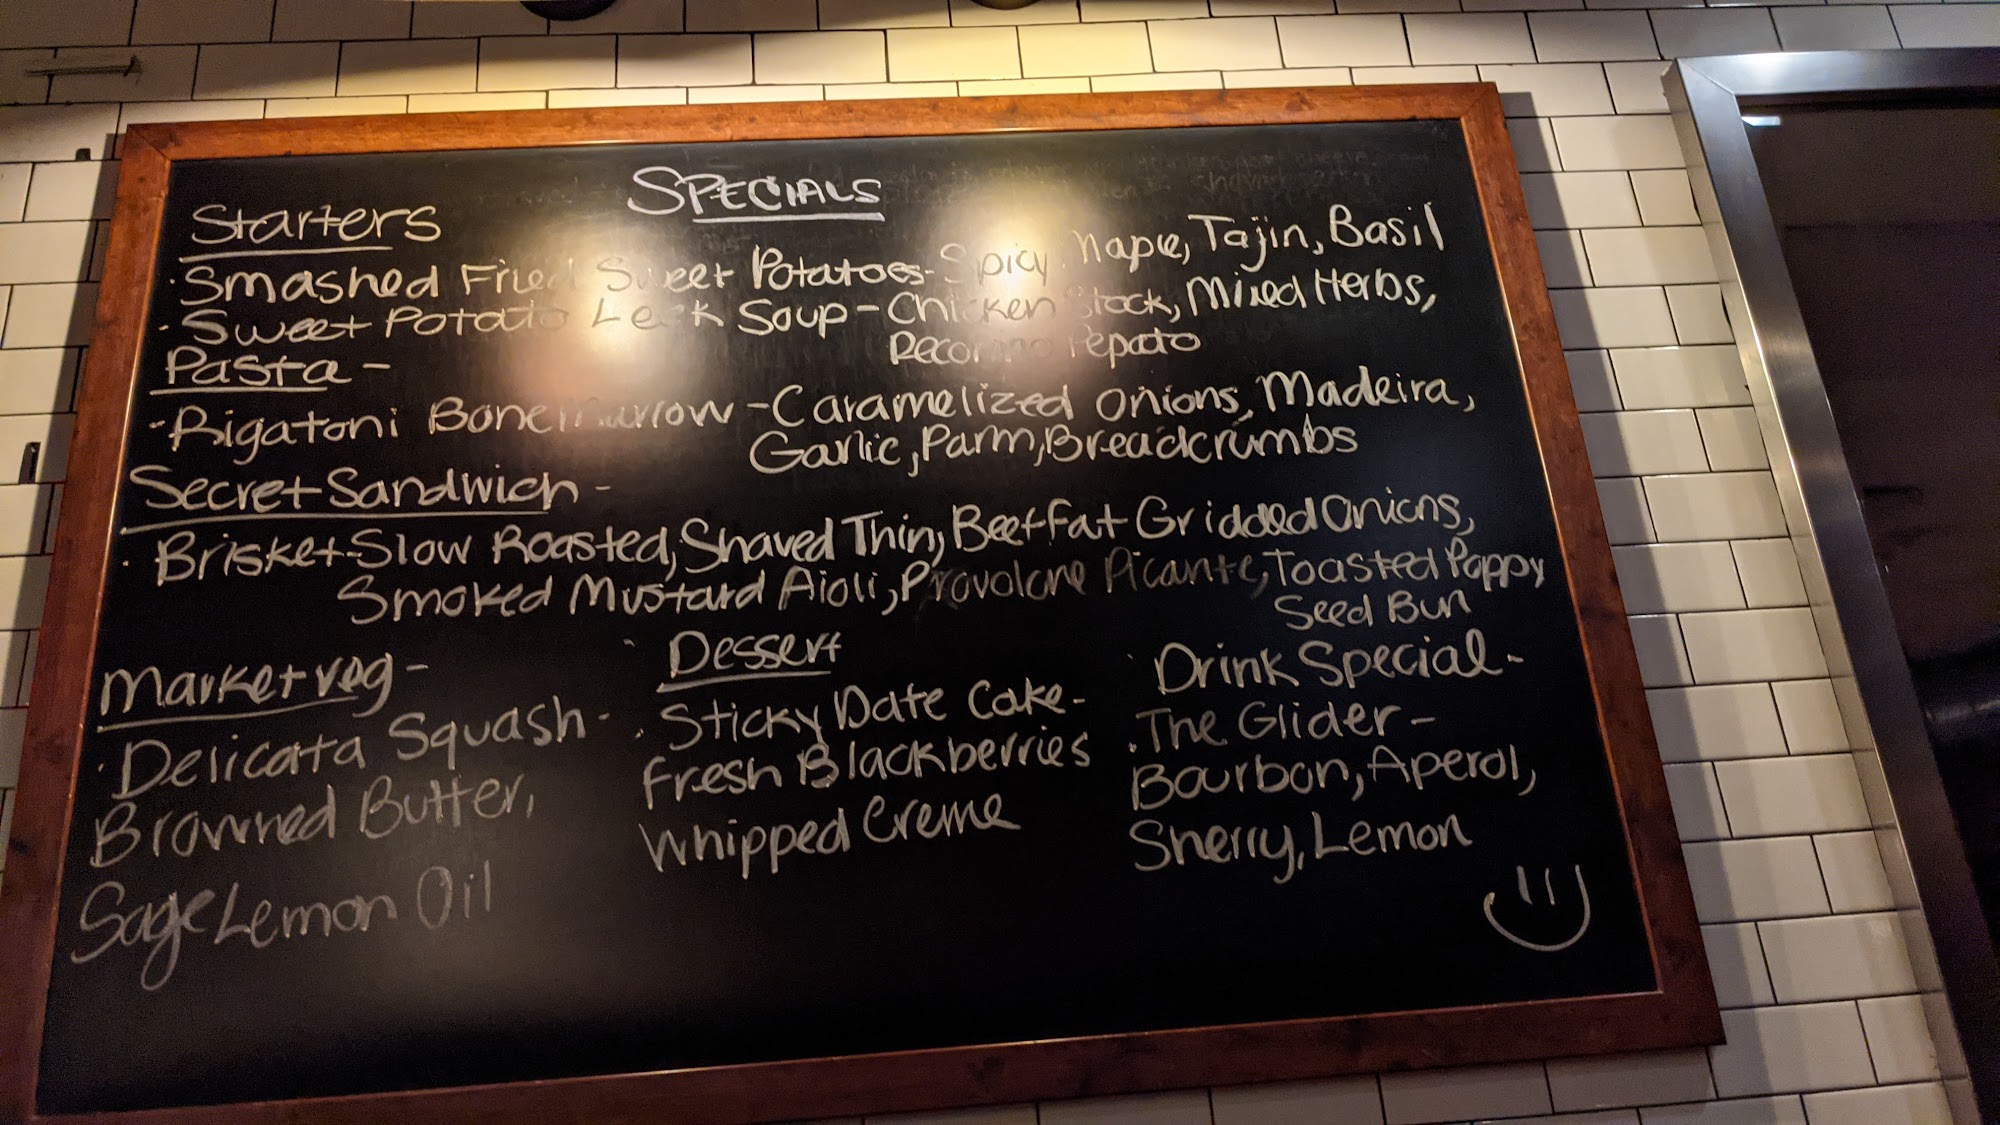 SPECIALS
Starters
· Smashed Fried Sweet Potatoes - Spicy Maple, Tajin, Basil
· Sweet Potato Leek Soup - Chicken Stock, Mixed Herbs,
Pecorino Pepato
Pasta -
- Rigatoni Bone Marrow - Caramelized Onions, Madeira,
Garlic, Parm, Breadcrumbs
Secret Sandwich -
· Brisket - Slow Roasted, Shaved Thin, Beef Fat Gridded Onions,
Smoked Mustard Aioli, Provolone Picante, Toasted Poppy
Seed Bun
Market veg -
· Delicata Squash -
Browned Butter,
Sage Lemon Oil
Dessert
· Sticky Date Cake -
Fresh Blackberries
Whipped Creme
Drink Special -
· The Glider -
Bourbon, Aperol,
Sherry, Lemon